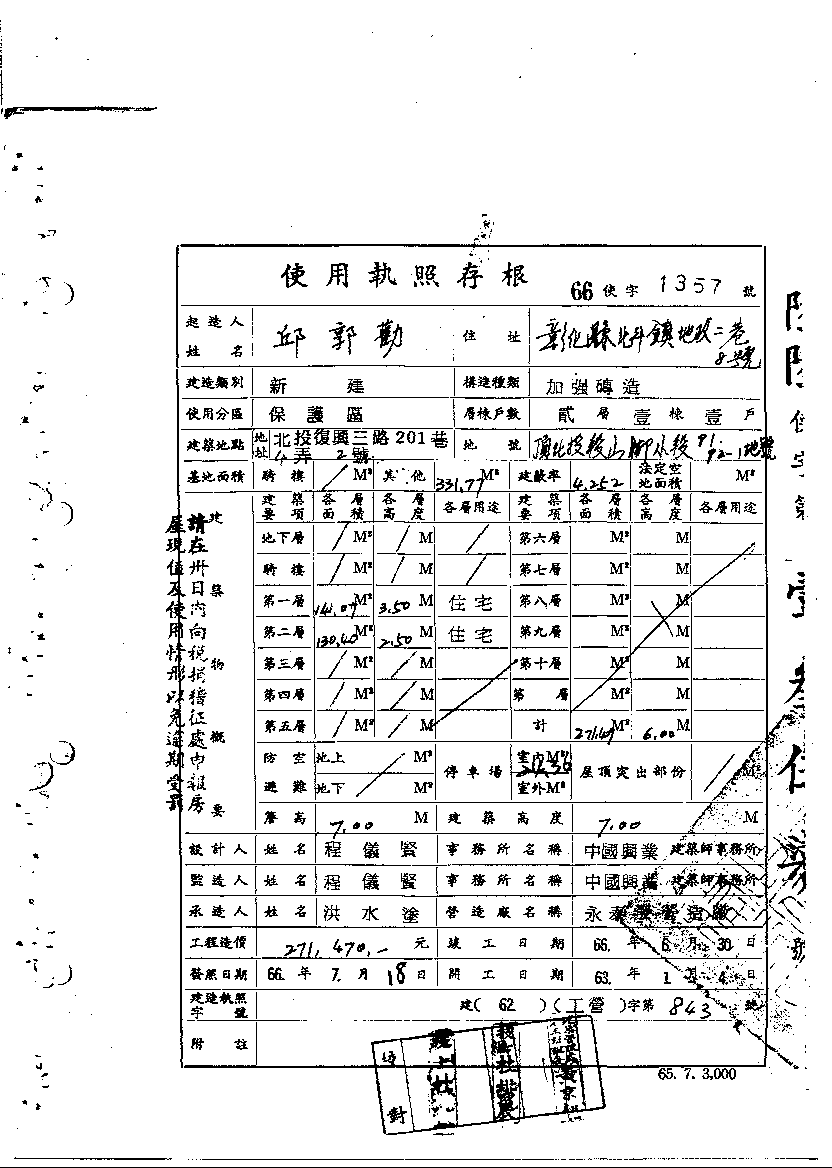 使用執照存根 66 使字 1357 號
起造人姓名 邱郭勸 住址 彰化縣北斗鎮地政二巷8號
建造類別 新建 構造種類 加強磚造
使用分區 保護區 層棟戶數 貳層壹棟壹戶
建築地點 地址 北投復興三路201巷4弄2號 地號 頂北投 91 92-1地號
基地面積 騎樓 / M² 其他 331.77 M² 建蔽率 4.252 法定空地面積 M²
建築物概要 建築要項 各層面積 各層高度 各層用途 建築要項 各層面積 各層高度 各層用途
地下層 / M² / M / 第六層 M² M
騎樓 / M² / M / 第七層 M² M
第一層 141.07 M² 3.50 M 住宅 第八層 M² M
第二層 130.40 M² 2.50 M 住宅 第九層 M² M
第三層 / M² / M 第十層 M² M
第四層 / M² / M 第 層 M² M
第五層 / M² / M 計 271.47 M² 6.00 M
防空避難 地上 / M² 停車場 室內M² 屋頂突出部份 / M²
地下 M² 室外M²
簷高 7.00 M 建築高度 7.00 M
設計人 姓名 程儀賢 事務所名稱 中國興業 建築師事務所
監造人 姓名 程儀賢 事務所名稱 中國興業 建築師事務所
承造人 姓名 洪水塗 營造廠名稱 永
工程造價 271,470.- 元 竣工日期 66. 年 6. 月 30. 日
發照日期 66. 年 7. 月 18 日 開工日期 63. 年 1. 月 4. 日
建造執照字號 建( 62 )(工營)字第 843 號
附註
65. 7. 3,000
請在卅日內向稅捐稽征處申報房
屋現值及使用情形以免逾期受罰
校對